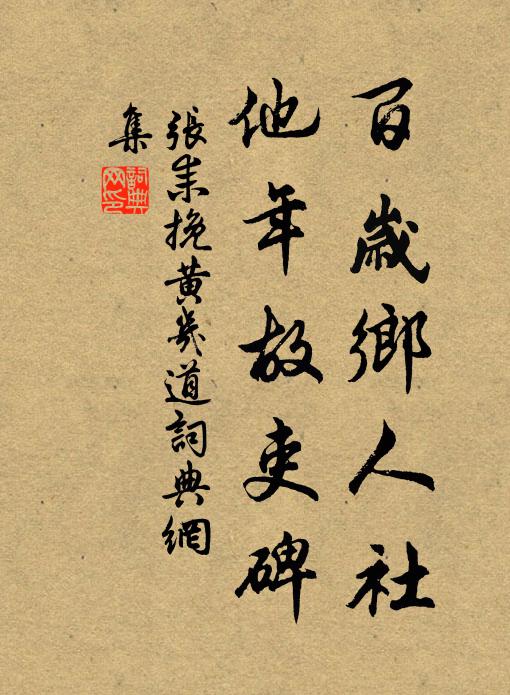 百歲鄉人社
他年故吏碑
張耒挽黄幾道詞典網
集
詞典网印